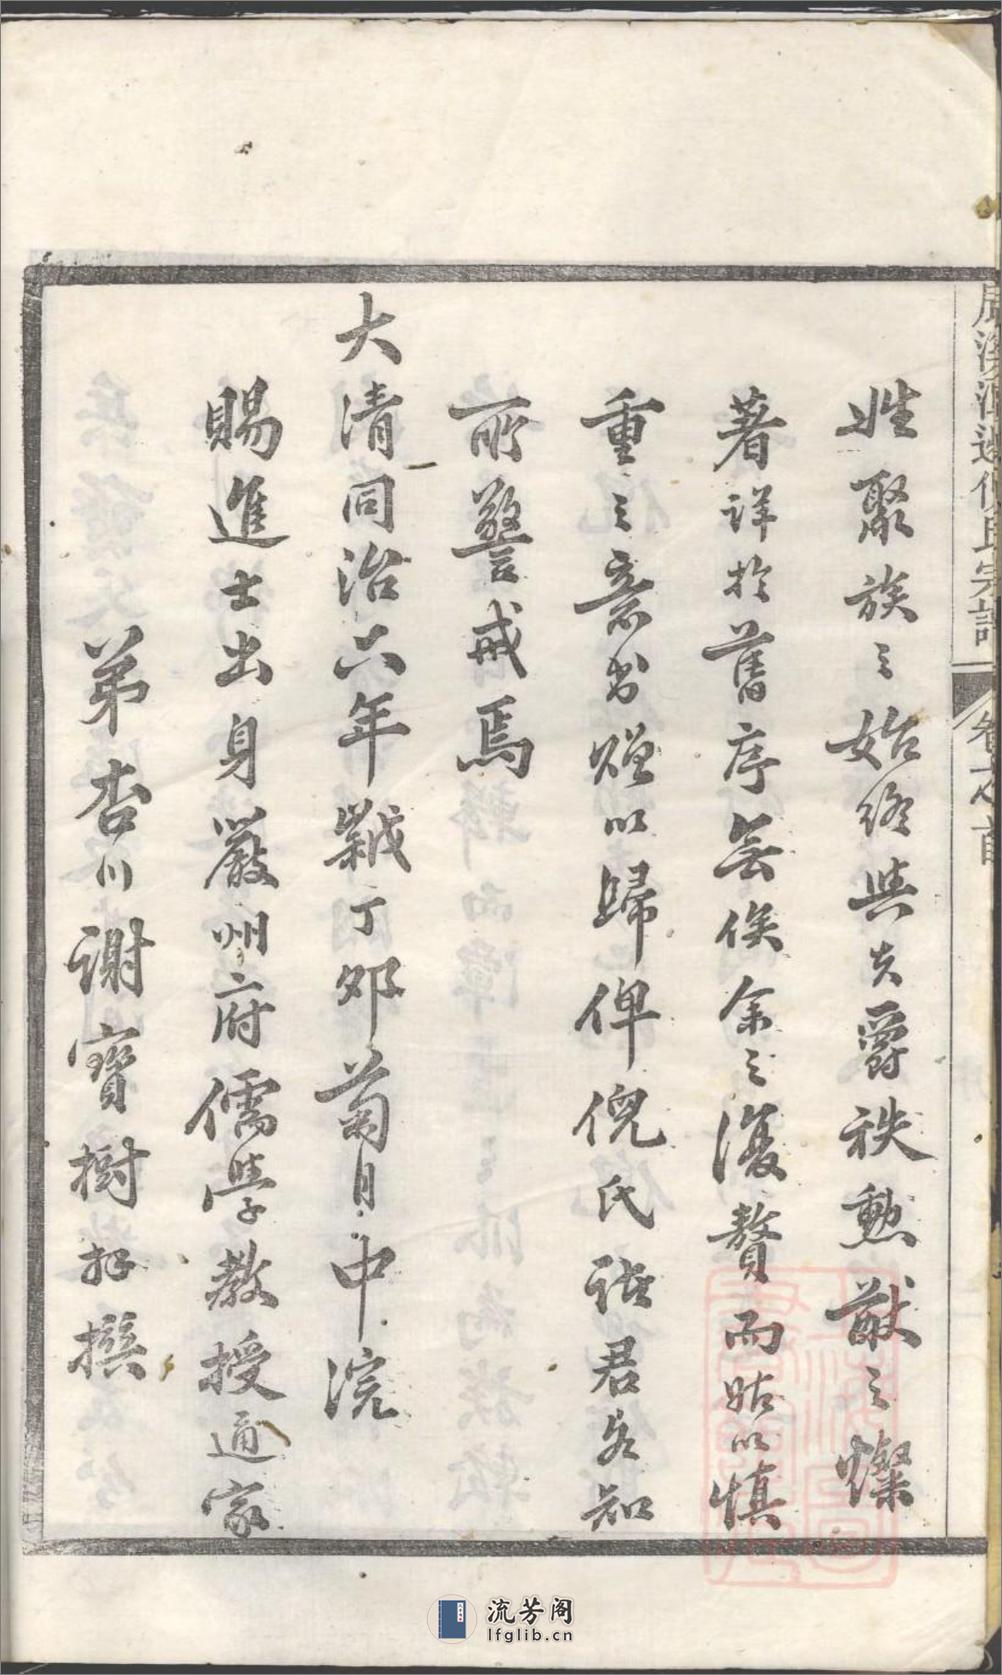 姓聚族之始終與夫爵秩勲猷之燦
著詳於舊序無俟余之復贅而姑以慎
重之意书赠以歸俾倪氏诸君各知
所警戒焉
大清同治六年歲丁卯菊月中浣
賜進士出身嚴州府儒學教授通家
弟杏川谢寶樹拜撰
倪氏宗譜
卷之首
流芳阁
lfglib.cn